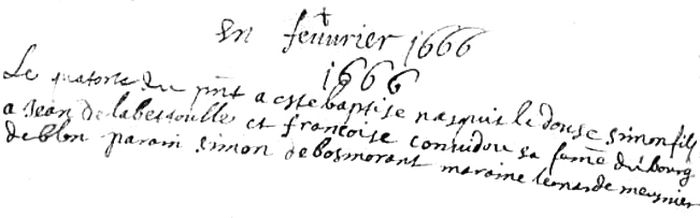 en feuurier 1666
1666
Le quatorse du pnt a este baptise nasquit le douse simon fils
a Jean de labetoulle et francoise couuidou sa fame du bourg
de blon parain simon de bosmorant maraine leonarde meusnier